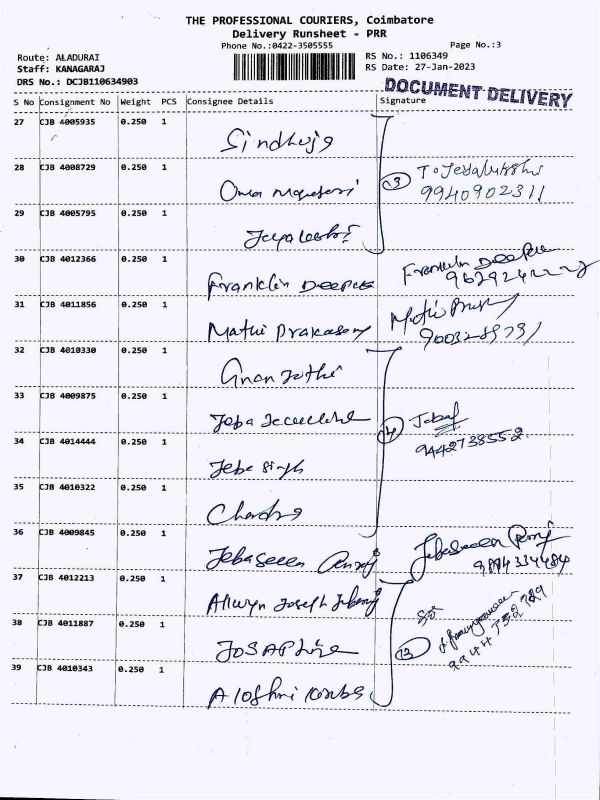 THE PROFESSIONAL COURIERS, Coimbatore
Delivery Runsheet - PRR
Phone No.:0422-3505555 Page No.:3
Route: ALADURAI RS No.: 1106349
Staff: KANAGARAJ RS Date: 27-Jan-2023
DRS No.: DCJB110634903
DOCUMENT DELIVERY
S No Consignment No Weight PCS Consignee Details Signature
27 CJB 4005935 0.250 1
Sindhuja
28 CJB 4008729 0.250 1
3 9940902311
29 CJB 4005795 0.250 1
30 CJB 4012366 0.250 1
Franklin Deepak Franklin Deepak
31 CJB 4011856 0.250 1
Mathi Prakasam Mathi
32 CJB 4010330 0.250 1
33 CJB 4009875 0.250 1
Jeba
34 CJB 4014444 0.250 1
4 9442738552
Jeba Singh
35 CJB 4010322 0.250 1
Chandra
36 CJB 4009845 0.250 1
Jebaseelan Jebaseelan
37 CJB 4012213 0.250 1
Allwyn Joseph
38 CJB 4011887 0.250 1
9944752729
39 CJB 4010343 0.250 1